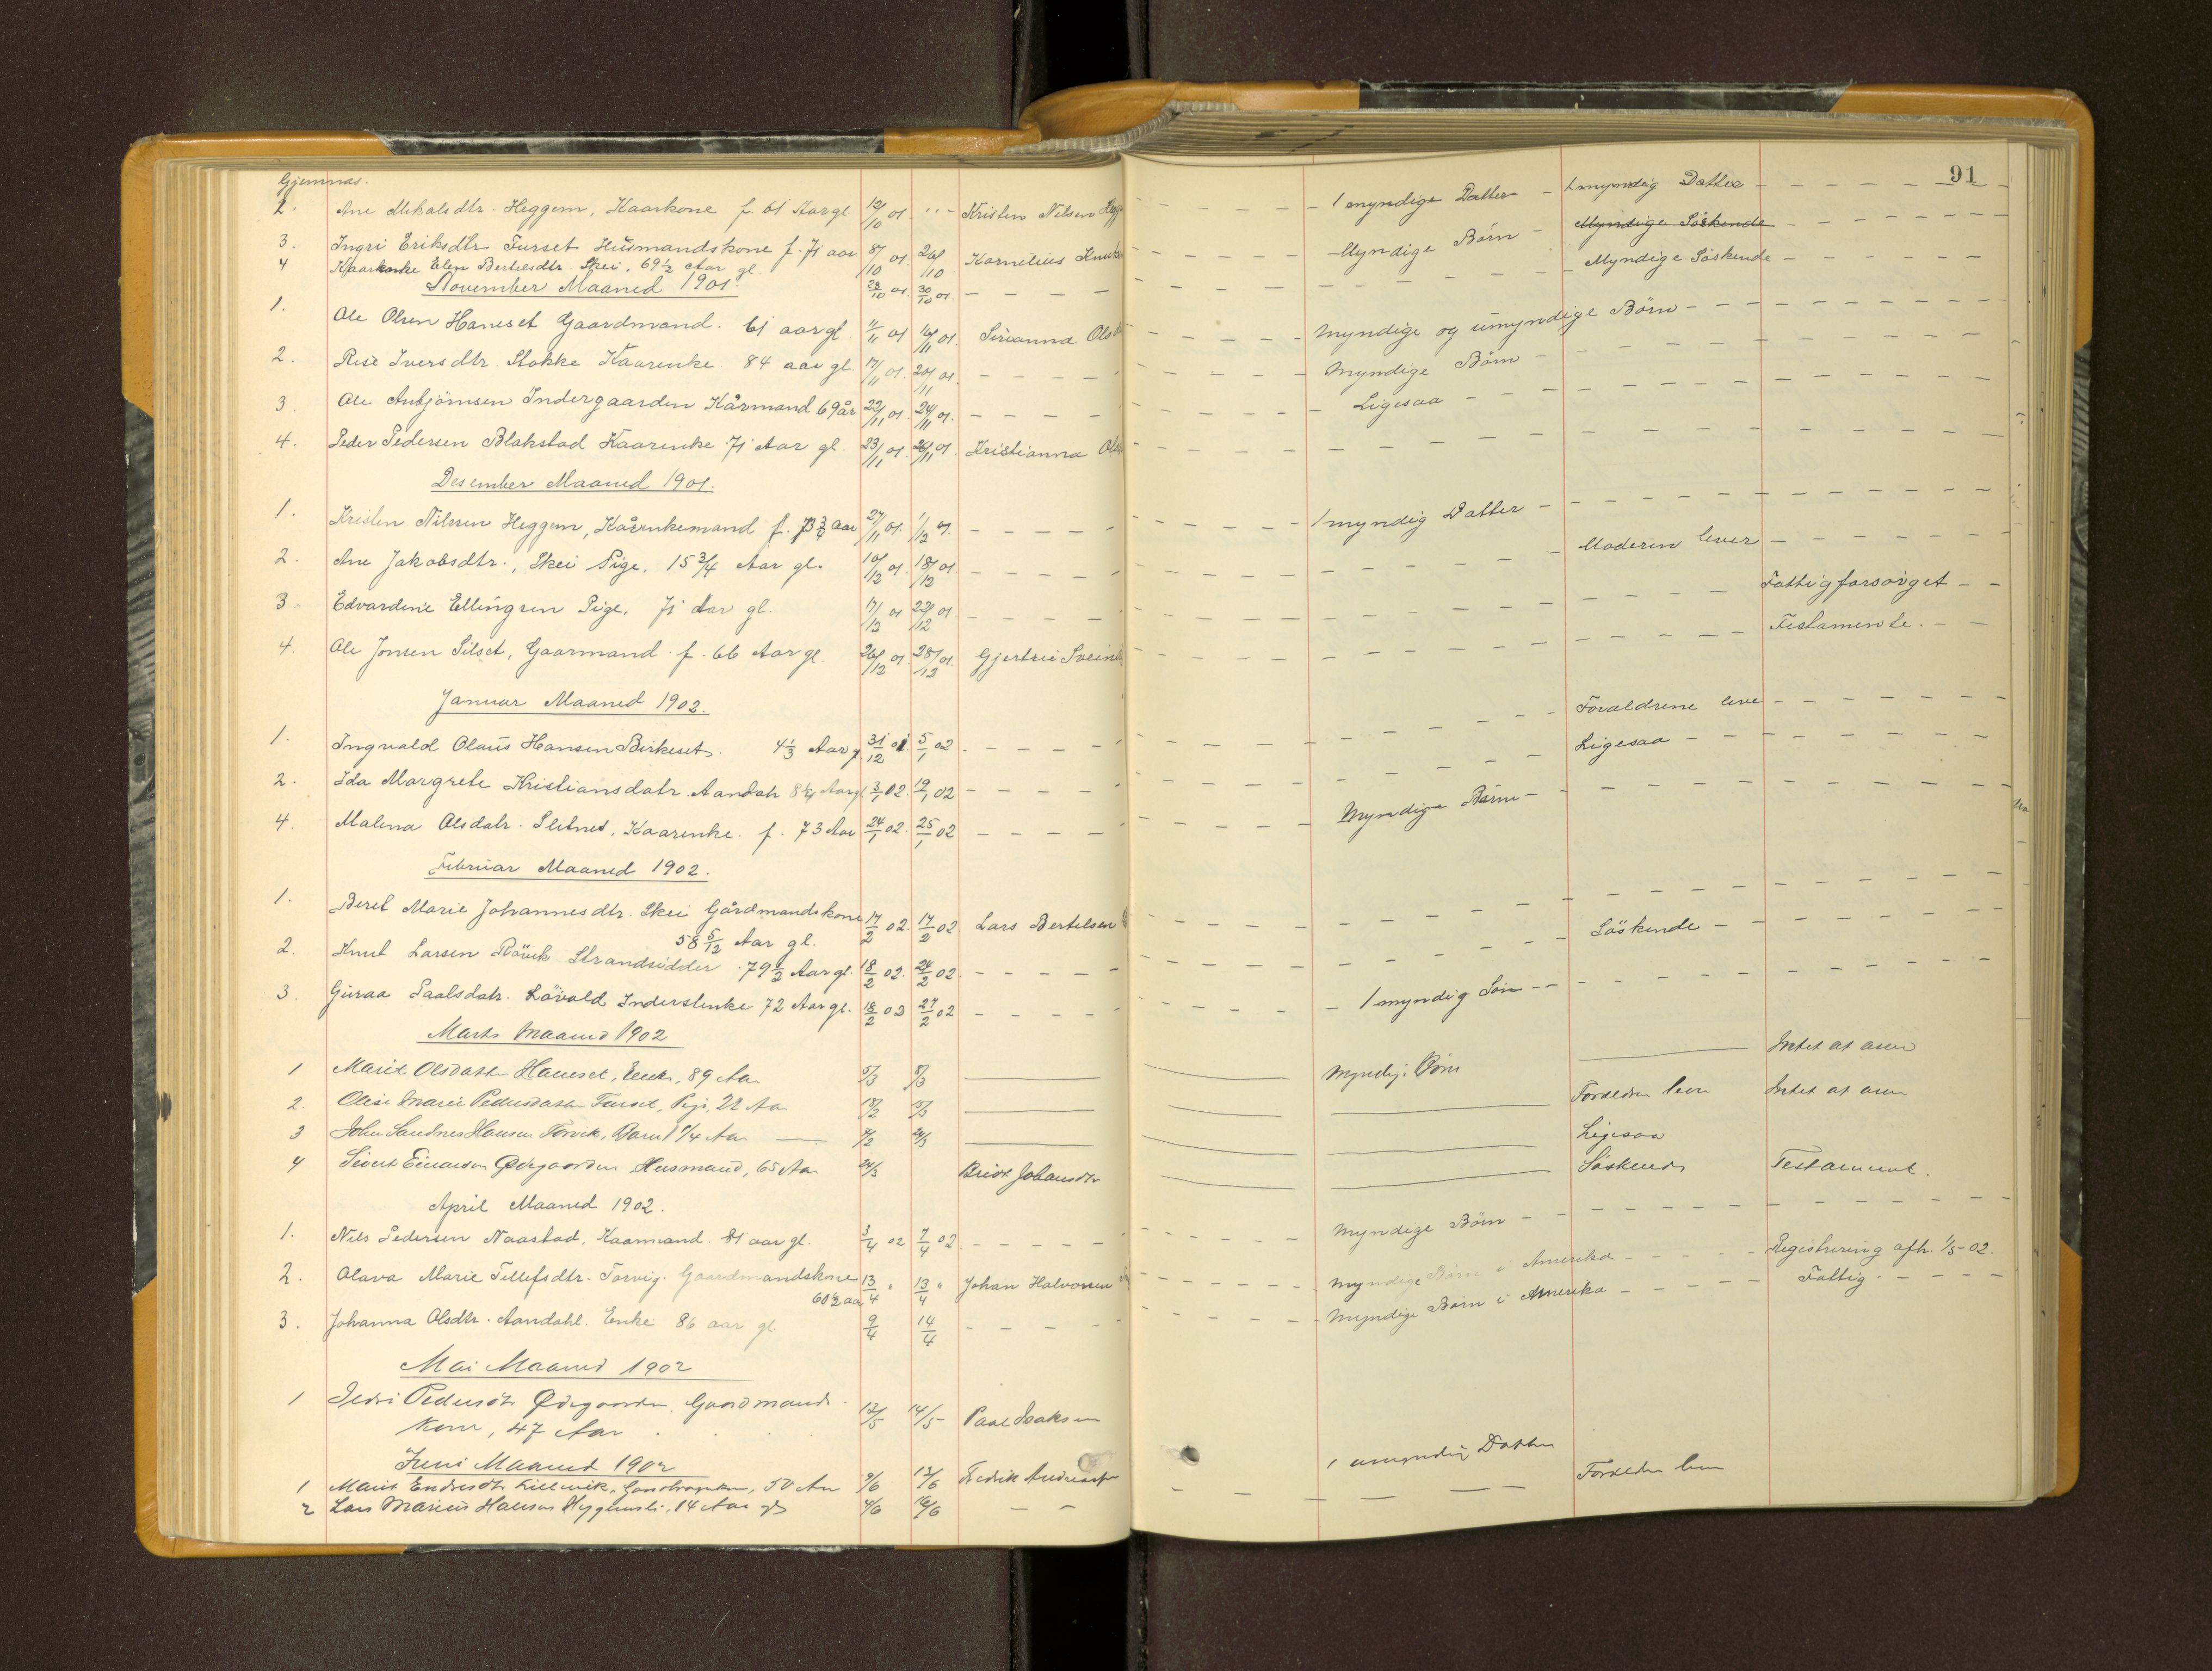 Gjemnæs.
91
2. Ane Mikalsdtr. Heggem, Kaarkone f. 61 Aar gl 12/10 01 " - Kristen Nilsen Hegg - - - - - 1 myndige Datter - 1 myndig Datter - - - - - -
3. Ingri Eriksdtr Furset Husmandskone f. 71 aar 8/10 01 26/10 Kornelius Knuts - - - - Myndige Børn - Myndige Söskende - - - - -
4 Kaarenke Elen Bertelsdtr. Skei, 69 1/2 Aar gl. 28/10 01. 30/10 01. - - - - Myndige Söskende - - - - -
November Maaned 1901.
1. Ole Olsen Haneset Gaardmand. 61 aar gl. 11/11 01 16/11 01. Sirianna Ols - - - - Myndige og umyndige Börn - - - - - -
2. Rise Iversdtr. Stokke Kaarenke 84 aar gl. 17/11 01. 20/11 01. - - - - Myndige Börn - - - - -
3. Ole Anbjörnsen Indergaarden Kårmand 69 år 22/11 01. 24/11 01. - - - - Ligesaa - - - - -
4. Peder Pedersen Blakstad Kaarenke 71 Aar gl. 23/11 01. 26/11 01. Kristianna Ols - - - - - -
Desember Maaned 1901.
1. Kristen Nilssen Heggem, Kårenkemand f. 73 3/4 aar 27/11 01. 1/12 01. - - - - 1 myndig Datter - - - - - -
2. Ane Jakobsdtr., Skei Pige, 15 3/4 Aar gl. 10/12 01. 18/12 01 - - - - Moderen lever - - - - -
3. Edvardine Ellingsen Pige, 71 Aar gl. 17/12 01 22/12 01. - - - - Fattigforsörget - -
4. Ole Jonsen Silset, Gaarmand f. 66 Aar gl. 26/12 01. 28/12 01. Gjertrü Svein - - - - Testamente. - -
Januar Maaned 1902.
1. Ingvald Olaüs Hansen Birkeset. 4 1/3 Aar g. 31/12 01 5/1 02 - - - - Forældrene leve - - - - -
2. Ida Margrete Kristiansdatr. Aandal 8 1/4 Aar gl 3/1 02. 19/1 02 - - - - Ligesaa - - - - -
4. Malena Olsdatr. Slitnes, Kaarenke. f. 73 Aar 24/1 02. 25/1 02 - - - - Myndige Börn - - - - -
Februar Maaned 1902.
1. Beret Marie Johannesdtr. Skei Gårdmandskone 14/2 02. 17/2 02 Lars Bertelsen - - - - - -
58 5/12 Aar gl.
2. Knut Larsen Strandsidder. 79 1/2 Aar gl. 18/2 02. 24/2 02. - - - - Söskende - - - - -
3. Güraa Paalsdatr. Lövold Inderstenke 72 Aar gl. 18/2 02 27/2 02 - - - - 1 myndig Sön - - - - -
Marts Maaned 1902
1 Marit Olsdatter Haneset, Enke, 89 Aar 5/3 8/3 Myndige Børn Intet at arve
2. Olise Marie Pedersdatter Furset, Pige, 22 Aar 18/2 5/3 Forældrene lever Intet at arve
3 John Sandnes Hansen Torvik, Barn 1 1/4 Aar 7/2 24/3 Ligesaa
4 Sivert Einarsen Ødegaarden Husmand, 65 Aar 24/3 Brit Johansdtr Söskende Testament.
April Maaned 1902.
1. Nils Pedersen Naastad, Kaarmand. 81 aar gl. 3/4 02 7/4 02. - - - - Myndige Börn - - - - -
2. Olava Marie Tellefsdtr. Torvig. Gaardmandskone 13/4 " 13/4 " Johan Halvorsen - - - - Myndige Börn i Amerika - - - - Registrering afh. 1/5-02.
60 1/2 aar
3. Johanna Olsdtr. Aandahl. Enke 86 aar gl 9/4 14/4 - - - - Myndige Börn i Amerika - - - - Fattig. - - -
Mai Maaned 1902
1 Pedersdtr Ødegaarden, Gaardmands- 12/5 14/5 Paal Isaksen
kone, 47 Aar
1 umyndig Datter
Juni Maaned 1902
1 Marit Endresdtr 50 Aar 9/6 12/6 Fredrik Forældrene lever
2 Lars Marius Hansen 14 Aar gl 4/6 16/6 - -